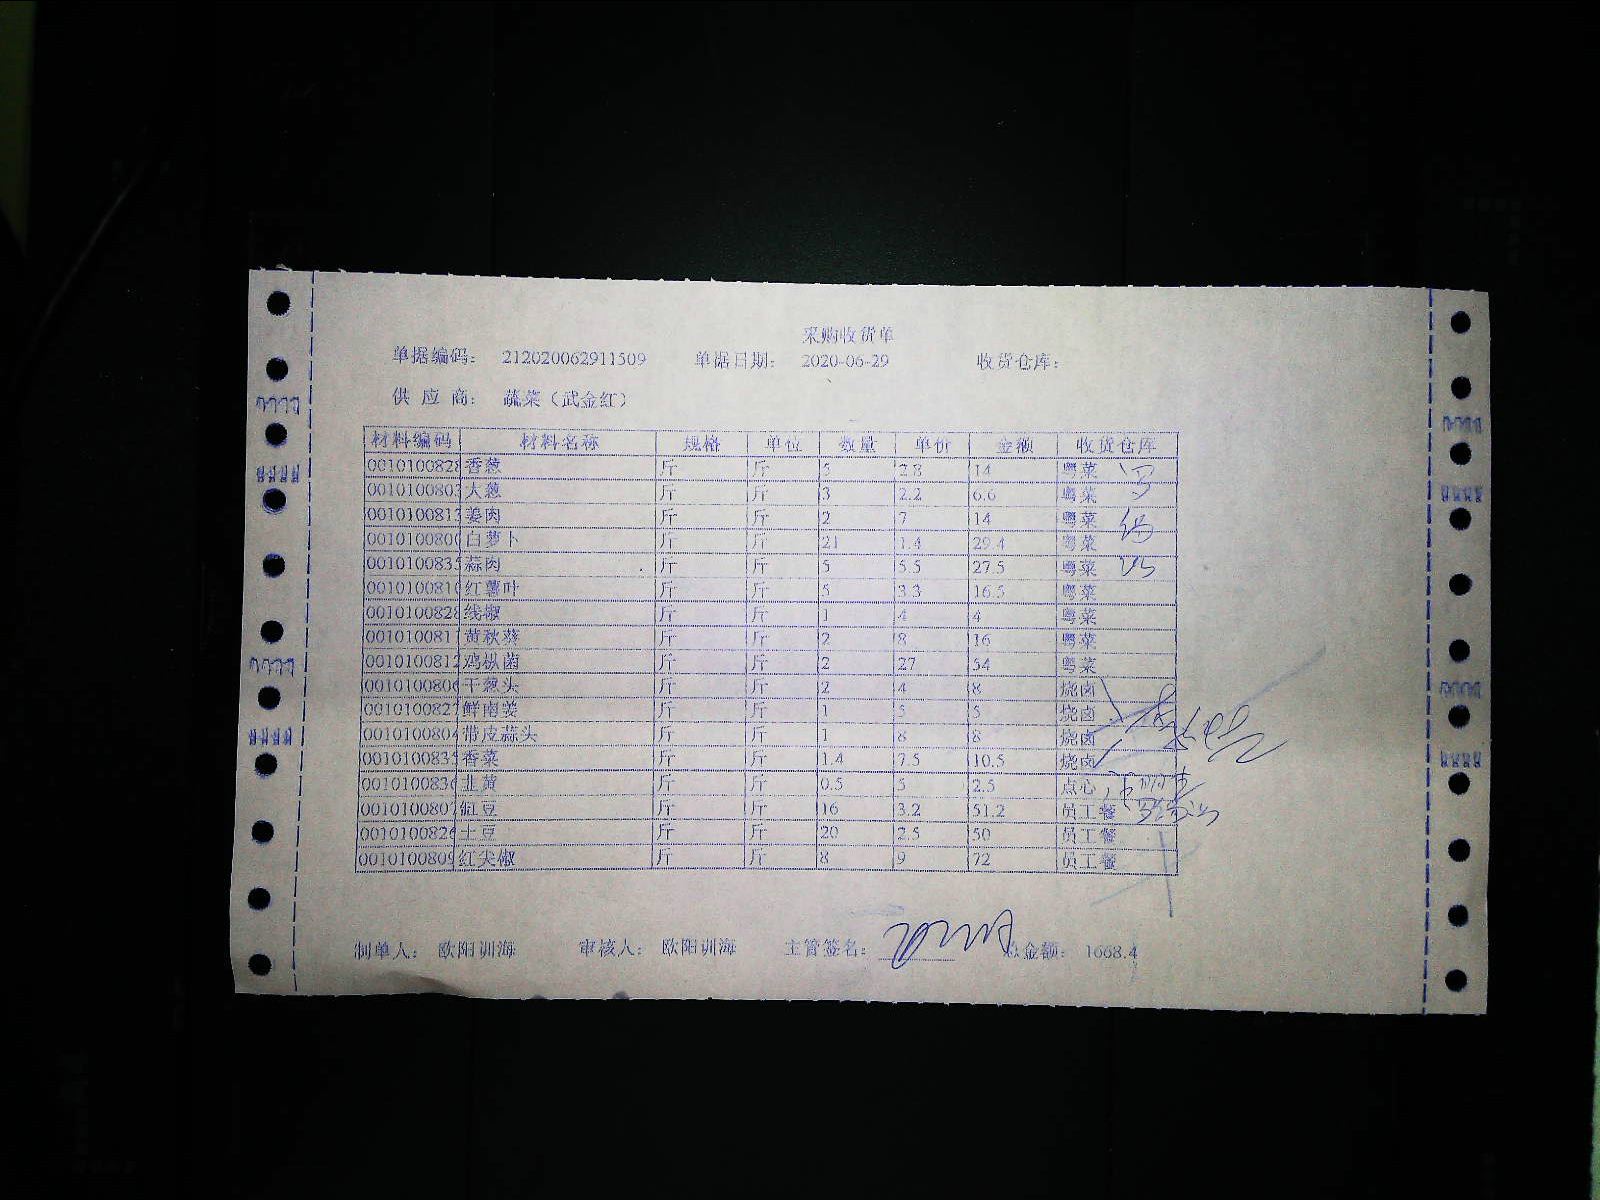 采购收货单
单据编码： 212020062911509 单据日期： 2020-06-29 收货仓库：
供 应 商： 蔬菜（武金红）
材料编码 材料名称 规格 单位 数量 单价 金额 收货仓库
0010100828 香葱 斤 斤 5 2.8 14 粤菜
0010100803 大葱 斤 斤 3 2.2 6.6 粤菜
0010100813 姜肉 斤 斤 2 7 14 粤菜
0010100800 白萝卜 斤 斤 21 1.4 29.4 粤菜
0010100835 蒜肉 斤 斤 5 5.5 27.5 粤菜
0010100810 红薯叶 斤 斤 5 3.3 16.5 粤菜
0010100828 线椒 斤 斤 1 4 4 粤菜
001010081 黄秋葵 斤 斤 2 8 16 粤菜
0010100812 鸡枞菌 斤 斤 2 27 54 粤菜
0010100806 干葱头 斤 斤 2 4 8 烧卤
0010100827 鲜南姜 斤 斤 1 5 5 烧卤
0010100804 带皮蒜头 斤 斤 1 8 8 烧卤
0010100835 香菜 斤 斤 1.4 7.5 10.5 烧卤
0010100836 韭黄 斤 斤 0.5 5 2.5 点心
0010100807 豇豆 斤 斤 16 3.2 51.2 员工餐
0010100826 土豆 斤 斤 20 2.5 50 员工餐
0010100809 红尖椒 斤 斤 8 9 72 员工餐
制单人： 欧阳训海 审核人： 欧阳训海 主管签名： 总金额： 1668.4